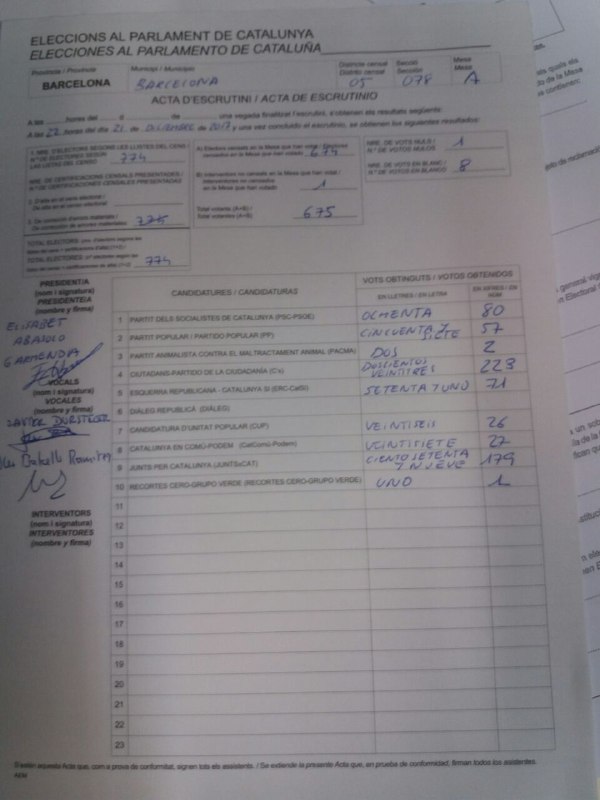 ELECCIONS AL PARLAMENT DE CATALUNYA
ELECCIONES AL PARLAMENTO DE CATALUÑA
Província / Provincia
BARCELONA
Municipi / Municipio
BARCELONA
Districte censal
Distrito censal
05
Secció
Sección
078
Mesa
Mesa
A
ACTA D'ESCRUTINI / ACTA DE ESCRUTINIO
A les hores del d de , una vegada finalitzat l'escrutini, s'obtenen els resultats següents:
A las 22 horas del día 21 de DICIEMBRE de 2017 y una vez concluido el escrutinio, se obtienen los siguientes resultados:
1. NRE. D'ELECTORS SEGONS LES LLISTES DEL CENS /
Nº DE ELECTORES SEGÚN
LAS LISTAS DEL CENSO
774
NRE. DE CERTIFICACIONS CENSALS PRESENTADES /
N.º DE CERTIFICACIONES CENSALES PRESENTADAS
TOTAL ELECTORS:
TOTAL ELECTORES:
774
A) Electors censats en la Mesa que han votat / Electores
censados en la Mesa que han votado
674
B) Interventors no censats en la Mesa que han votat /
Interventores no censados
en la Mesa que han votado
1
Total votants (A+B) /
Total votantes (A+B)
675
NRE. DE VOTS NULS /
N.º DE VOTOS NULOS
1
NRE. DE VOTS EN BLANC /
N.º DE VOTOS EN BLANCO
8
PRESIDENT/A
(nom i signatura)
PRESIDENTE/A
(nombre y firma)
ELISABET
GARMENDIA
VOCALS
(nom i signatura)
VOCALES
(nombre y firma)
INTERVENTORS
(nom i signatura)
INTERVENTORES
(nombre y firma)
CANDIDATURES / CANDIDATURAS
VOTS OBTINGUTS / VOTOS OBTENIDOS
EN LLETRES / EN LETRA
EN XIFRES / EN NÚM
1 PARTIT DELS SOCIALISTES DE CATALUNYA (PSC-PSOE) OCHENTA 80
2 PARTIT POPULAR / PARTIDO POPULAR (PP) CINCUENTA Y SIETE 57
3 PARTIT ANIMALISTA CONTRA EL MALTRACTAMENT ANIMAL (PACMA) DOS 2
4 CIUTADANS-PARTIDO DE LA CIUDADANÍA (C's) DOSCIENTOS VEINTITRES 223
5 ESQUERRA REPUBLICANA - CATALUNYA SÍ (ERC-CatSí) SETENTA Y UNO 71
6 DIÀLEG REPUBLICÀ (DIÀLEG)
7 CANDIDATURA D'UNITAT POPULAR (CUP) VEINTISEIS 26
8 CATALUNYA EN COMÚ-PODEM (CatComú-Podem) VEINTISIETE 27
9 JUNTS PER CATALUNYA (JUNTSxCAT) CIENTO SETENTA Y NUEVE 179
10 RECORTES CERO-GRUPO VERDE (RECORTES CERO-GRUPO VERDE) UNO 1
11
12
13
14
15
16
17
18
19
20
21
22
23
S'estén aquesta Acta que, com a prova de conformitat, signen tots els assistents. / Se extiende la presente Acta que, en prueba de conformidad, firman todos los asistentes.